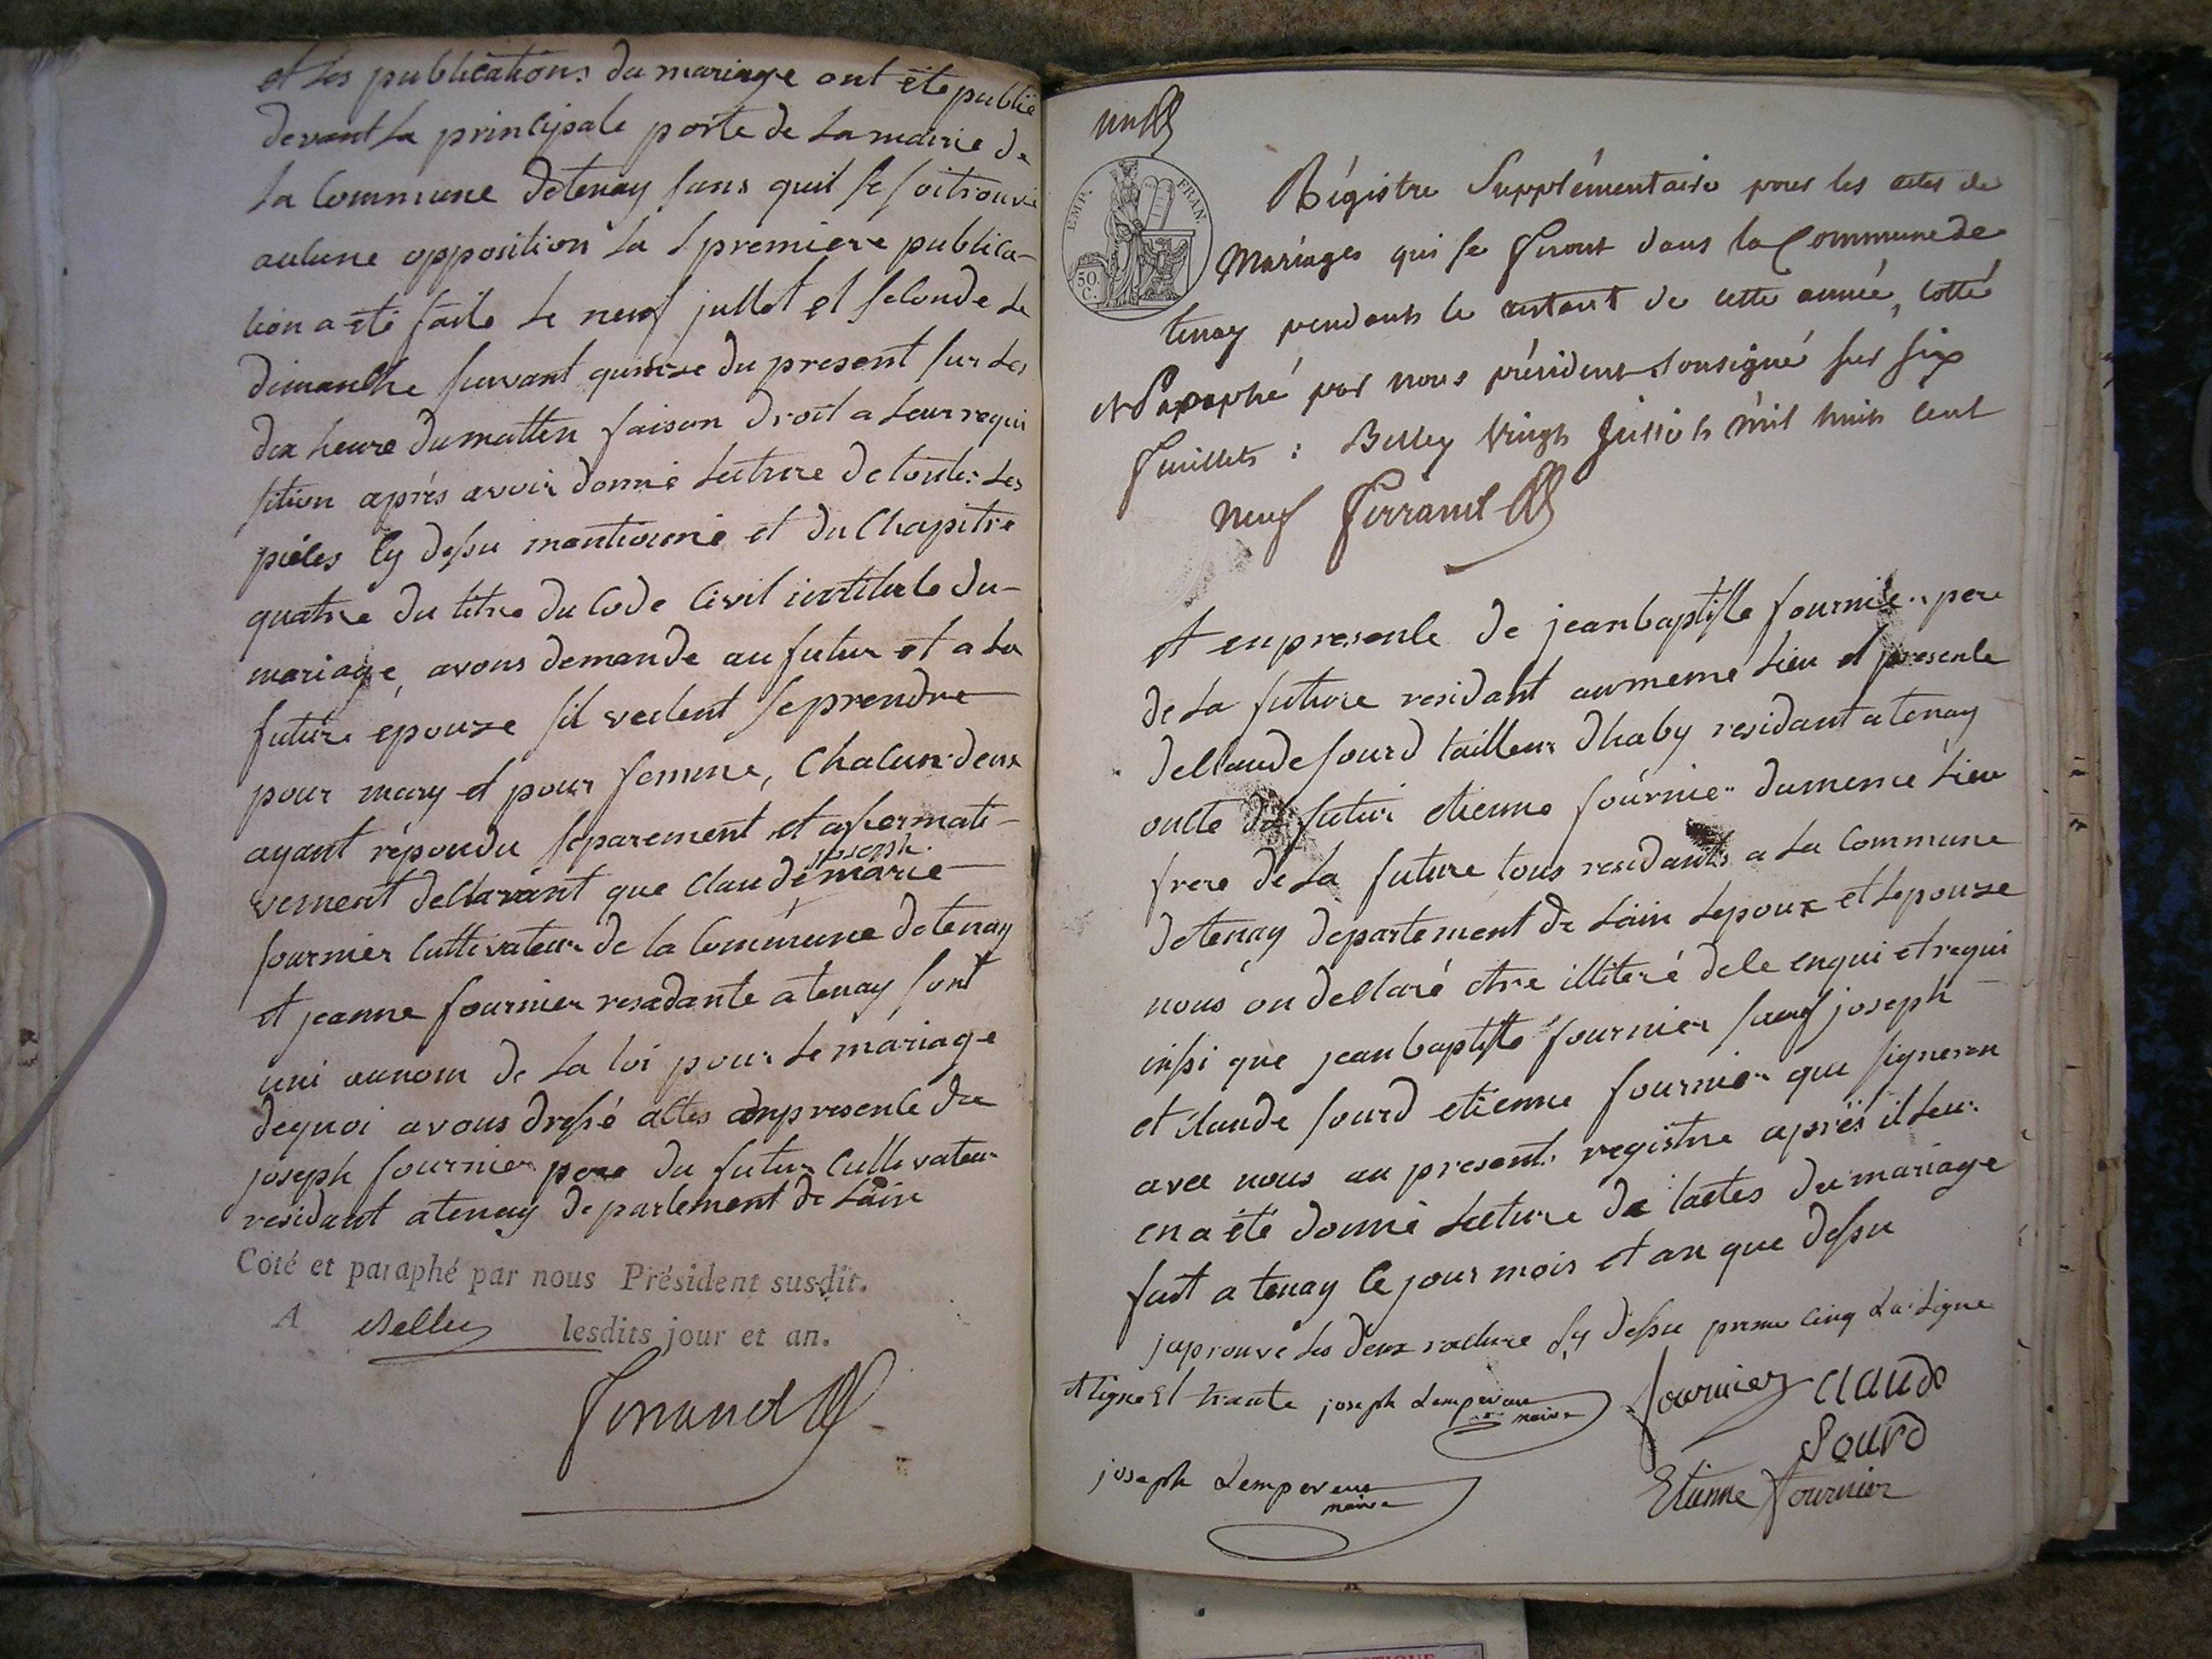 et les publications du mariage ont été publié
devant la principale porte de la mairie de
la commune detenay sans quil se soitrouvé
aucune opposition la premiere publica-
tion a été faite le neuf jullet et seconde le
dimanche suivant quinze du present sur les
dix heure dumattin faison droit a leur requi
sition aprés avoir donné lecture de toutes les
piéces cy dessu mentionné et du chapitre
quatre du titre du code civil intitulé du-
mariage, avons demande au futur et a la
future épouze sil veulent seprendre
pour mary et pour femme, chacun deux
ayant répondu séparement et affermati-
joseph
vement declarant que claude marie
fournier cultivateur de la commune detenay
et jeanne fournier resedante a tenay sont
uni aunom de la loi pour le mariage
dequoi avons dressé actes enpresence du
joseph fournier pere du futur cultivateur
residant atenay departement de lain
Coté et paraphé par nous Président susdit.
A Belley lesdits jour et an.
Ferrand
EMP. FRAN.
50. C.
Régistre Supplémentaire pour les actes de
Mariages qui se feront dans la Commune de
tenay pendant le restant de cette année, cotté
et Paraphé par nous président sousigné sur six
feuillets : Belley vingt juillet mil huit cent
neuf Ferrand
et enpresence de jeanbaptiste fournier pere
de la future residant aumeme lieu et presence
declaude sourd tailleur dhaby residant a tenay
oncle du futur etienne fournier dumeme lieu
frere de la future tous residants a la commune
detenay departement de lain lepoux et lepouze
nous on declaré etre illiteré dele enqui et requi
inssi que jeanbaptiste fournier sauf joseph
et claude sourd etienne fournier que signeron
avec nous au present registre aprés il leur
en a été donné lecture de lactes du mariage
fait a tenay le jour mois et an que dessu
japrouve les deux radure cy dessu cinq la ligne
et ligne trante joseph Lempereur maire fournier claude
sourd
joseph Lempereur maire
Etienne fournier